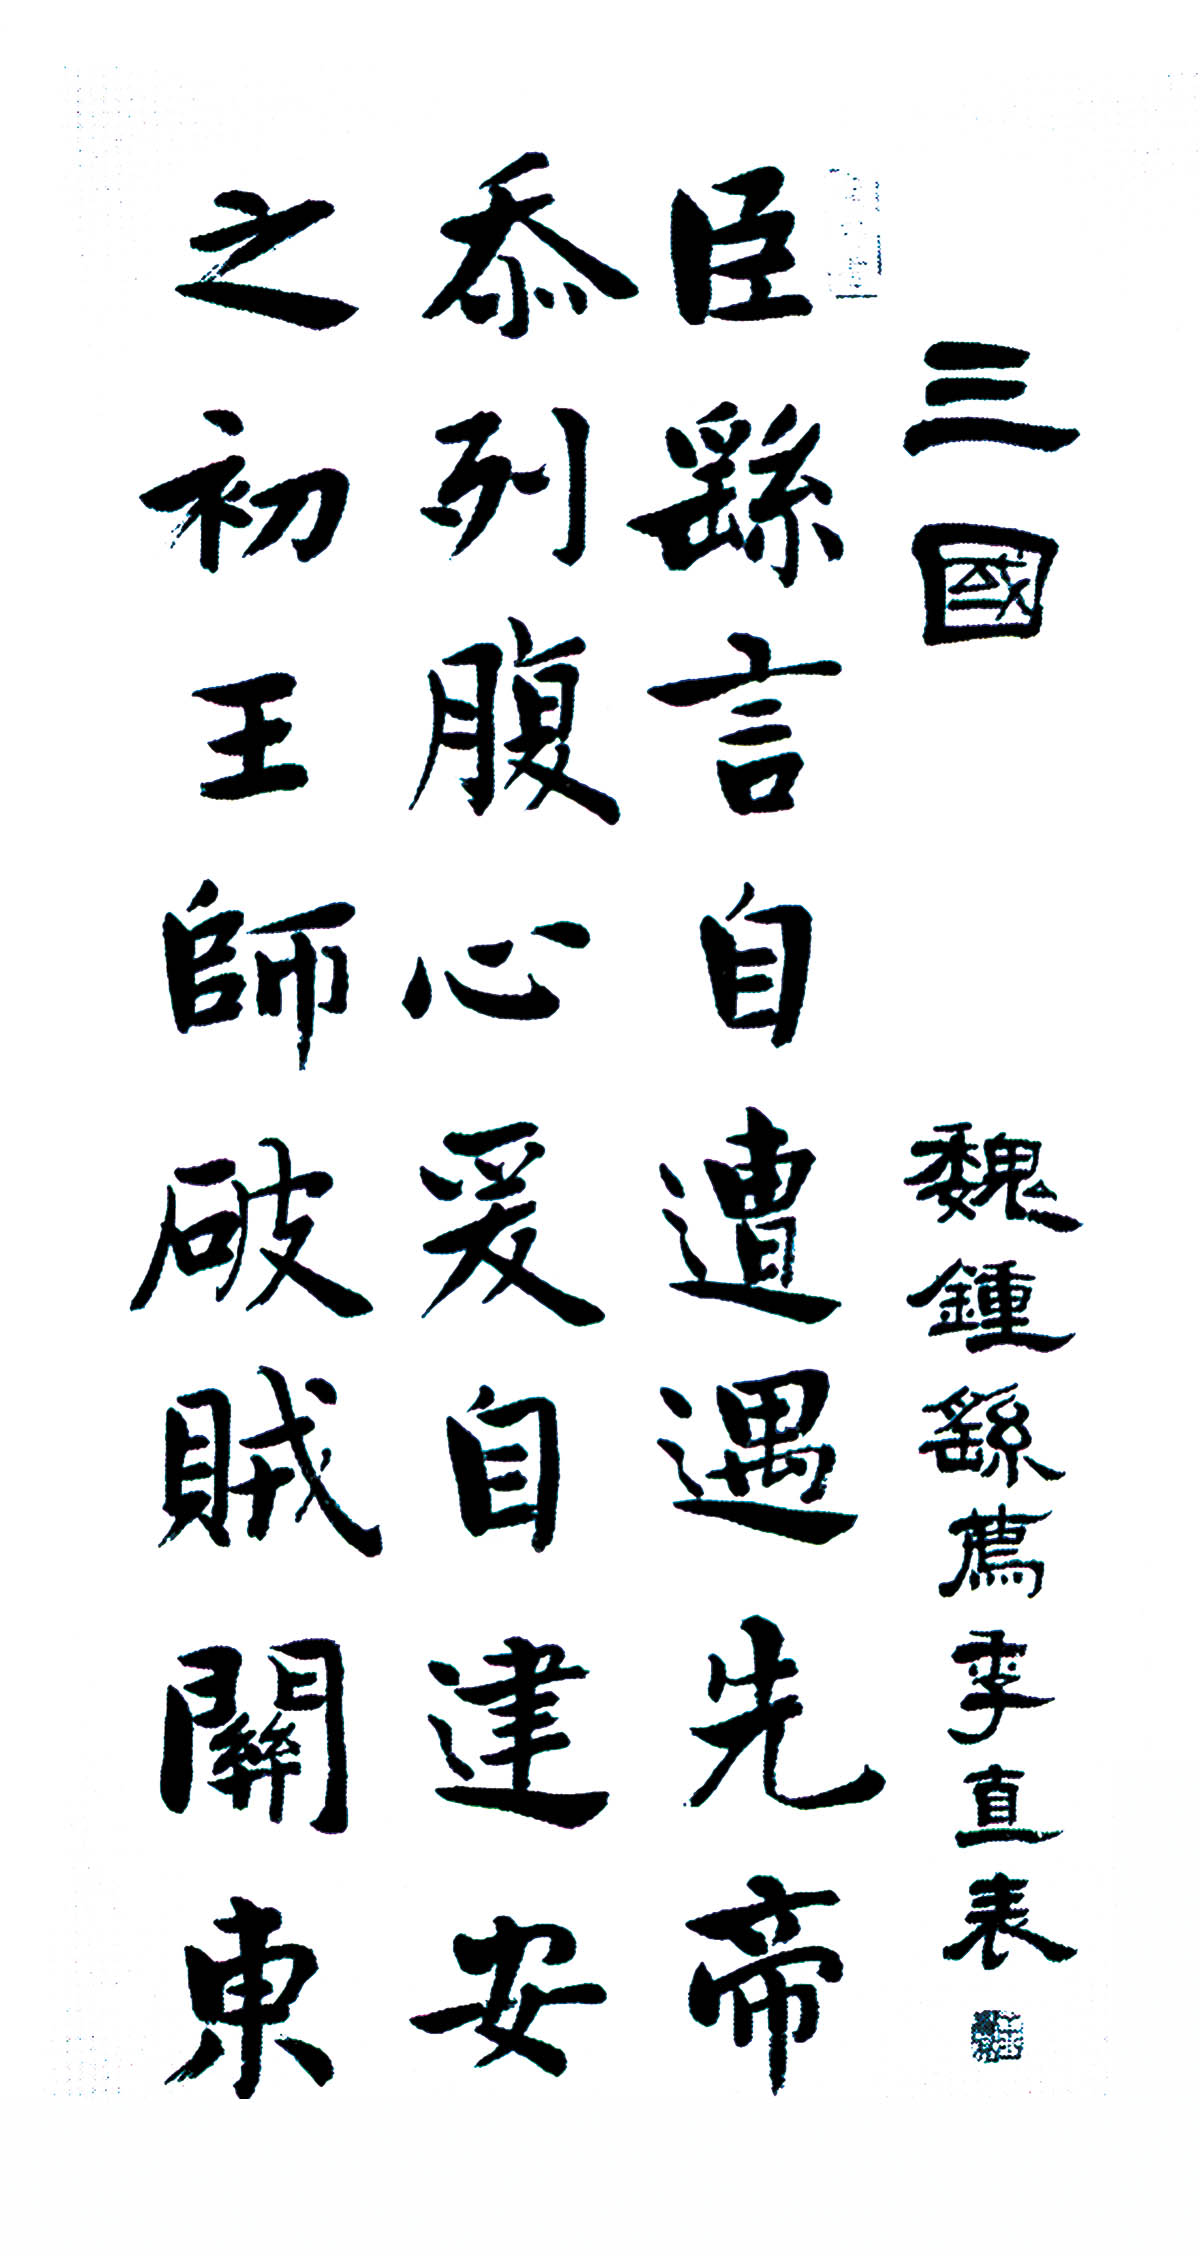 三國 魏鍾繇薦季直表
臣繇言自遭遇先帝
忝列腹心爰自建安
之初王師破賊關東